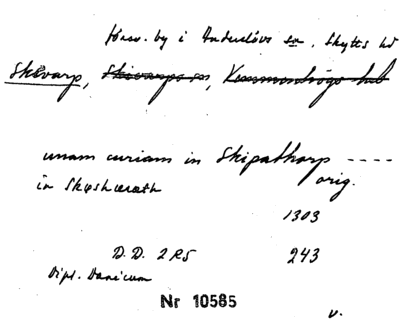 försv. by i Anderslövs sn, Skytts hd
Skivarp, Skivarps sn, Vemmenhögs hd
unam curiam in Skipatharp ----
in Skøshærath orig.
1303
D.D. 2 R5 243
Dipl. Danicum
Nr 10585
v.